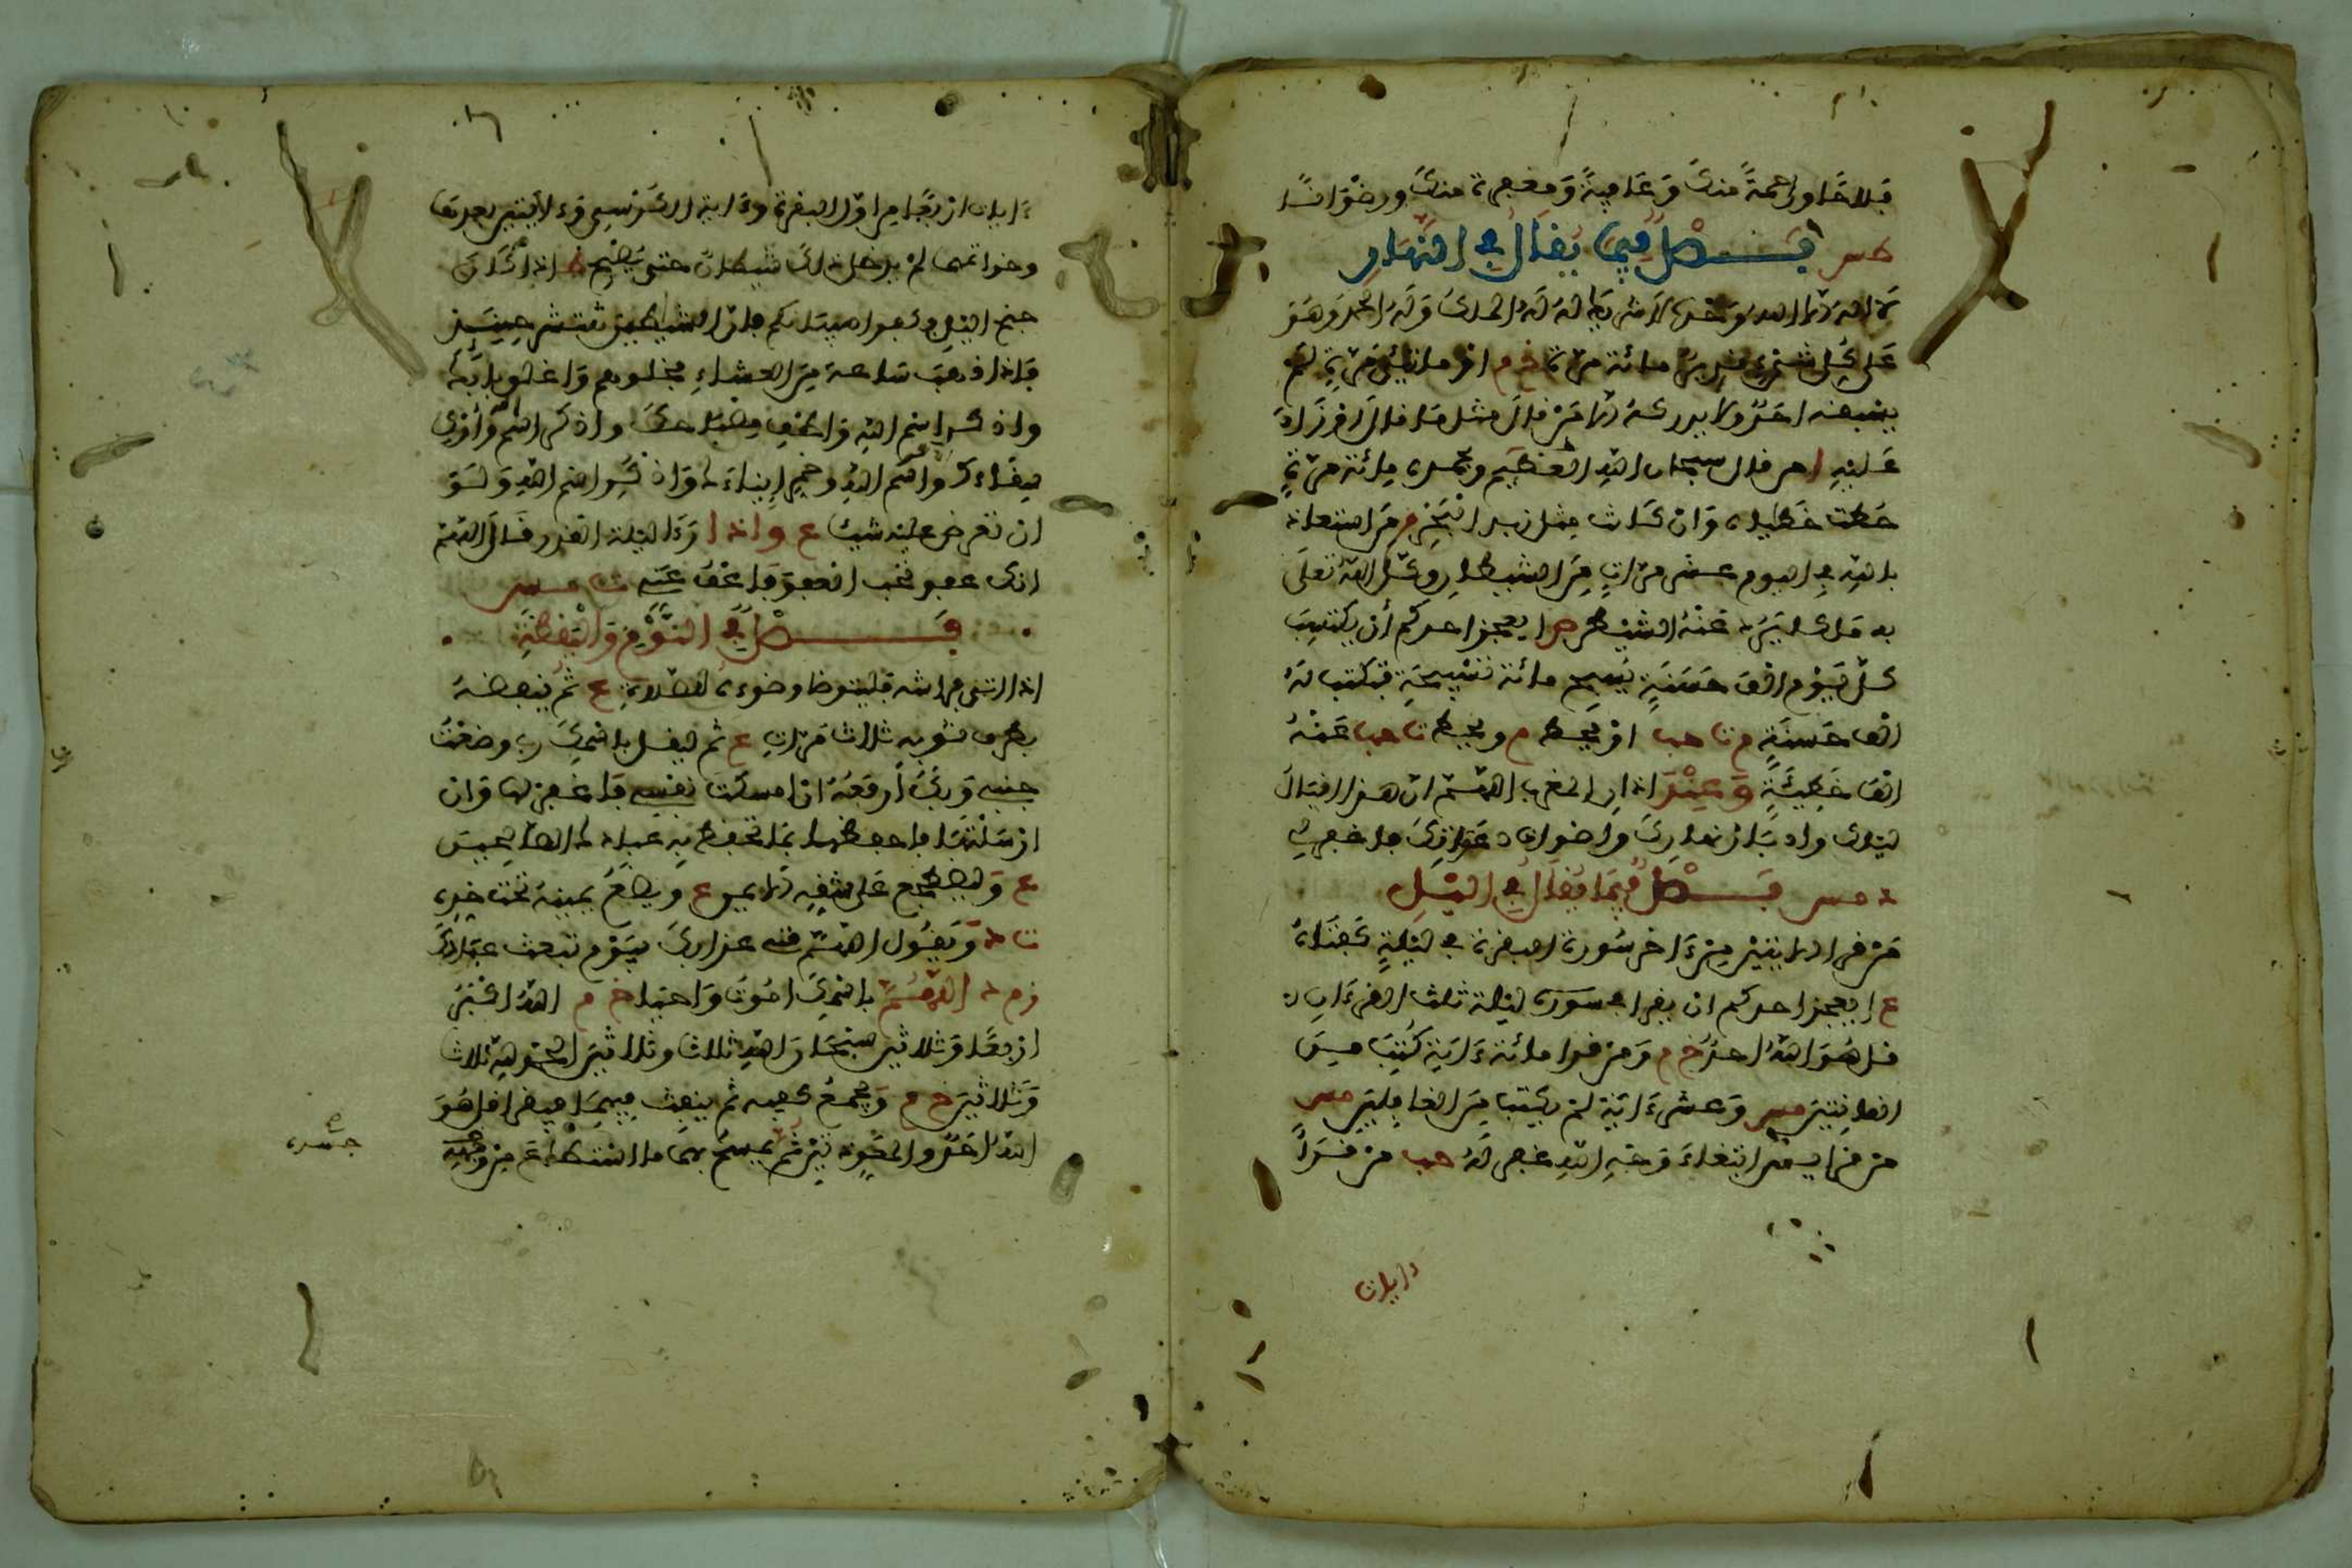 فلاحا ورحمة منك وعافية ومغفرة منك ورضوانا
طس فصل فيما يقال في النهار
لا اله الا الله وحده لا شريك له له الملك وله الحمد وهو
على كل شيء قدير مائة مرة خ م او مائتي مرة لم
يسبقه احد ولا يدركه الا من قال مثل ما قال او زاد
عليه ا من قال سبحان الله العظيم وبحمده مائة مرة
حطت خطاياه وان كانت مثل زبد البحر م من استعاذ
بالله في اليوم عشر مرات من الشيطان وكل الله تعلى
به ملكا يرد عنه الشيطن ص ا يعجز احدكم أن يكتسب
كل يوم الف حسنة يسبح مائة تسبيحة فيكتب له
الف حسنة م ت حب او يحط م ويحط ت حب عنه
الف خطيئة وعند اذان المغرب اللهم ان هذا اقبال
ليلك وادبار نهارك واصوات دعاتك فاغفر لي
د مس فصل فيما يقال في الليل
من قرا الايتين من ءاخر سورة البقرة في ليلة كفتاه
ع ا يعجز احدكم ان يقرا في سورة ليلة ثلث القرءان
قل هو الله احد خ م ومن قرا مائة ءاية كتب من
القانتين مس وعشر ءاية لم يكتب من الغافلين مس
من قرا يس ابتغاء وجه الله غفر له حب من قرا
ءايات
ءايات اربعا من اول البقرة وءاية الكرسي وءايتين بعدها
وخواتمها لم يدخل ذلك شيطان حتى يصبح ط اذا كان
جنح الليل فكفوا صبيانكم فان الشيطين تنتشر حينئذ
فاذا ذهب ساعة من العشاء فخلوهم واغلق بابك
واذكر اسم الله واطف مصباحك واذكر اسم الله وأوك
سقاءك واذكر اسم الله وخمر إناءك واذكر اسم الله ولو
ان تعرض عليه شيئا ع واذا رءا ليلة القدر قال اللهم
انك عفو تحب العفو فاعف عني ت س مس
فصل في النوم واليقظة
اذا اتى فراشه فليتوضا وضوءه للصلاة ع ثم ينفضه
بطرف ثوبه ثلاث مرات ع ثم ليقل باسمك ربي وضعت
جنبي وبك أرفعه ان امسكت نفسي فاغفر لها وان
ارسلتها فاحفظها بما تحفظ به عبادك الصالحين
ع وليضطجع على شقه الايمن ع ويضع يمينه تحت خده
ت د ويقول اللهم قني عذابك يوم تبعث عبادك
د اللهم باسمك اموت واحيا خ م الله اكبر
اربعا وثلاثين سبحان الله ثلاثا وثلاثين الحمد لله ثلاثا
وثلاثين خ م ويجمع كفيه ثم ينفث فيهما فيقرا قل هو
الله احد والمعوذتين ثم يمسح بهما ما استطاع من وجهه
جسده